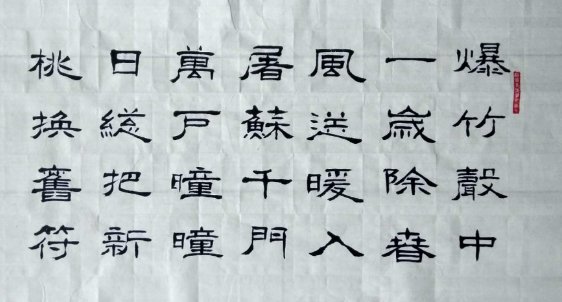 爆竹聲中
一歲除春
風送暖入
屠蘇千門
萬戶曈曈
日總把新
桃換舊符